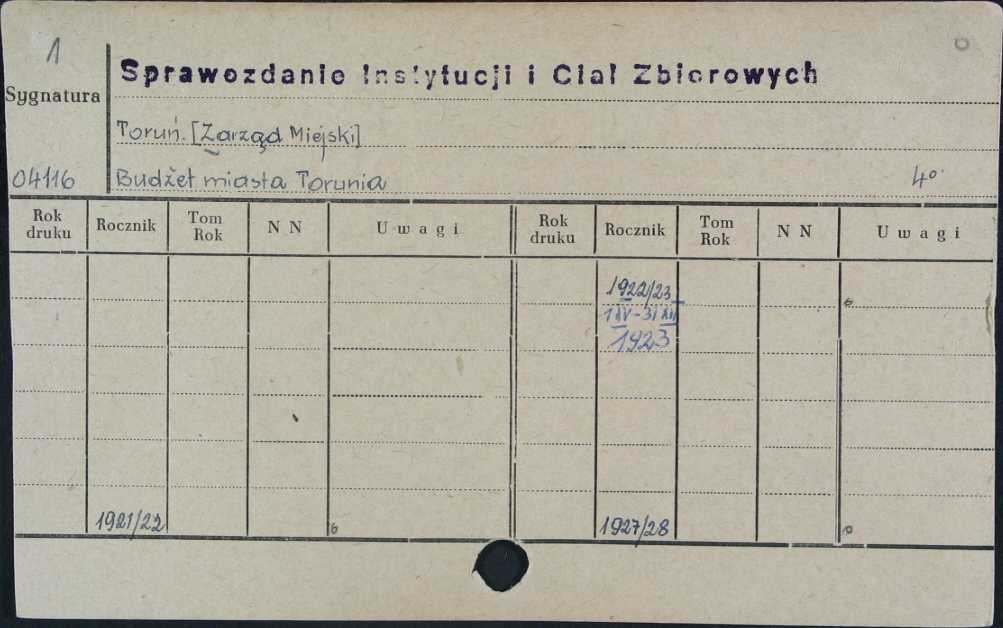 1
Sprawozdanie Instytucji i Ciał Zbiorowych
Sygnatura
Toruń. [Zarząd Miejski]
04116
Budżet miasta Torunia
4°
Rok druku Rocznik Tom Rok N N Uwagi Rok druku Rocznik Tom Rok N N Uwagi
1922/23
1 IV - 31 XII
1923
1921/22
1927/28